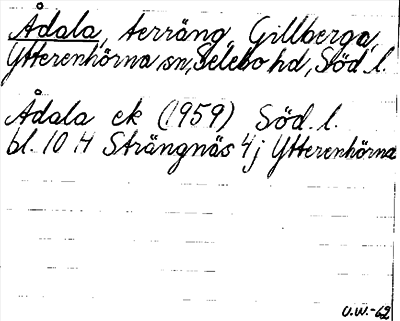 Ådala, terräng, Gillberga,
Ytterenhörna sn, Selebo hd, Söd. l.
Ådala ek (1959) Söd. l.
bl. 10 H Strängnäs 4j Ytterenhörna
U.W.-62